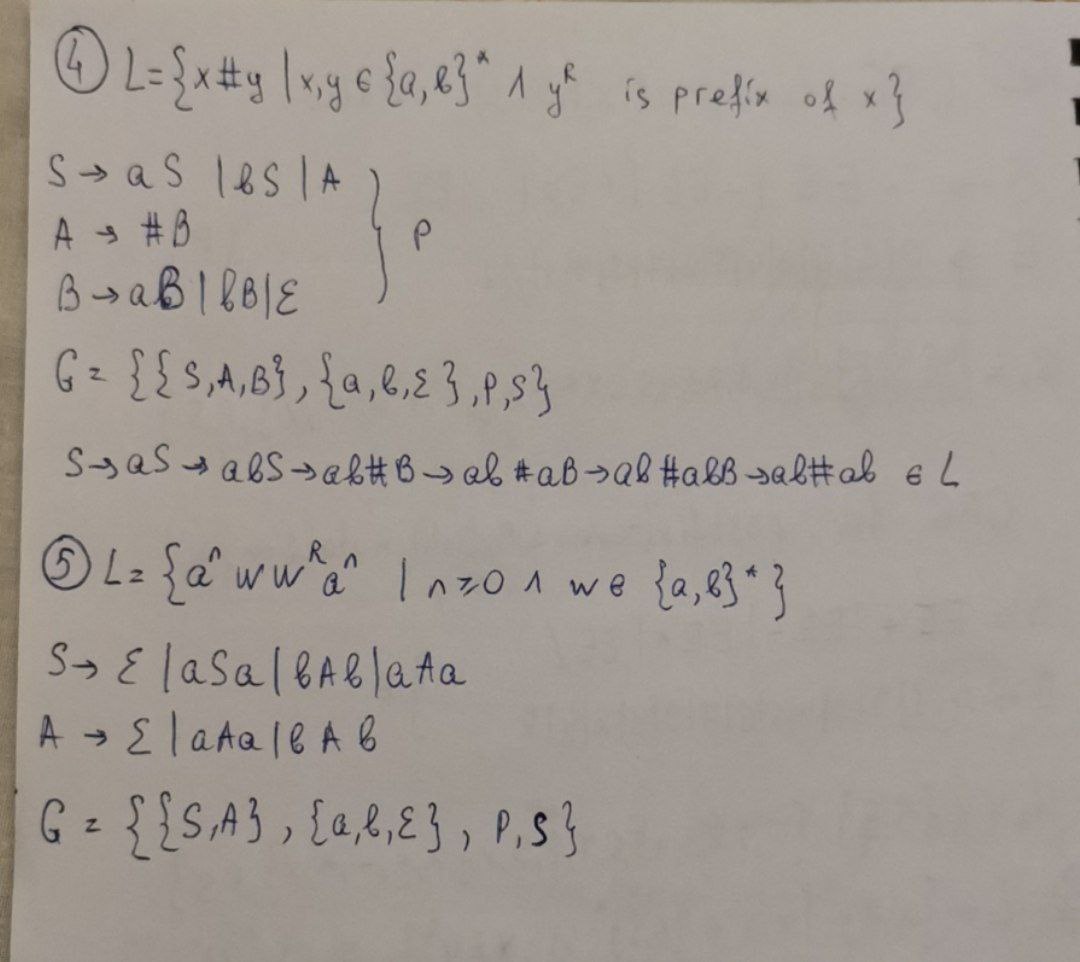 ④ L={x#y | x,y ∈ {a,b}* ∧ yᴿ is prefix of x}
S → aS | bS | A
A → #B } P
B → aB | bB | ε
G = {{S,A,B}, {a,b,ε}, P,S}
S→aS→abS→ab#B→ab#aB→ab#abB→ab#ab ∈ L
⑤ L= {aⁿ w wᴿ aⁿ | n≥0 ∧ w ∈ {a,b}*}
S→ ε | aSa | bAb | aAa
A → ε | aAa | bAb
G = {{S,A}, {a,b,ε}, P,S}